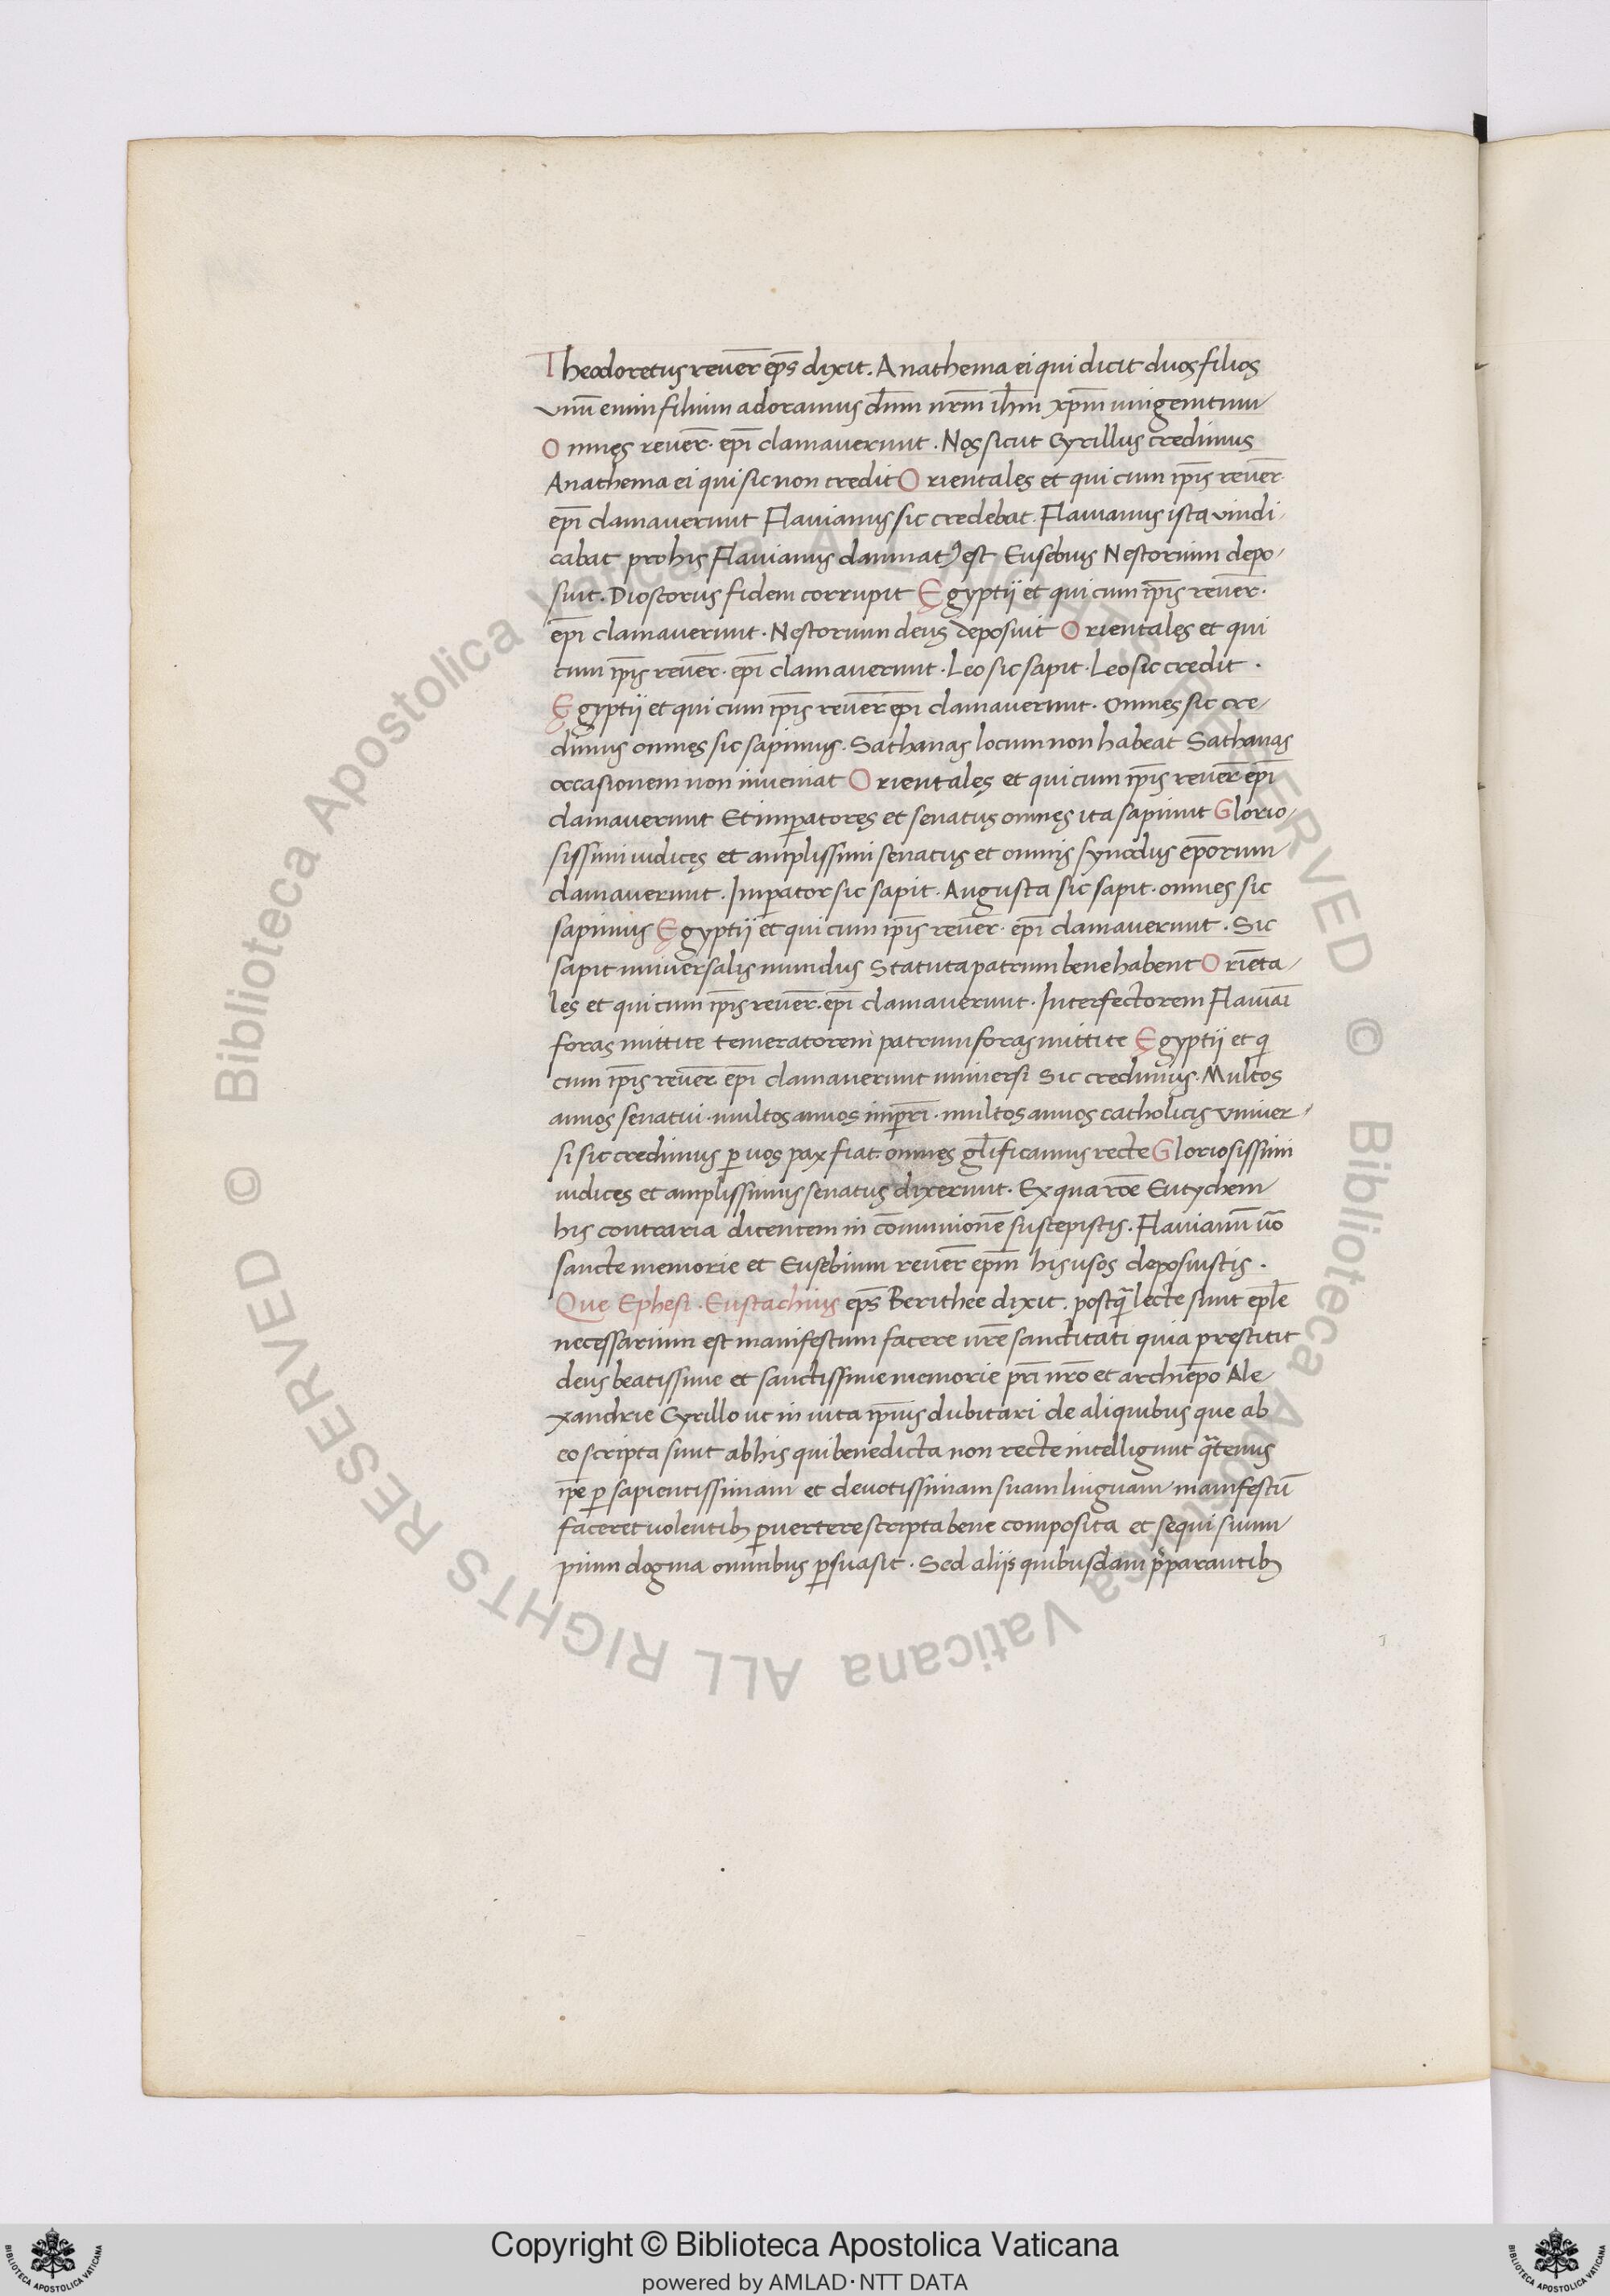 Theodoretus reuer̄ ep̄s dixit. Anathema ei qui dicit duos filios
vnū enim filium adoramus dn̄m nr̄m ih̄m xp̄m unigenitum
Omnes reuer̄. ep̄i clamauerunt. Nos sicut Cyrillus credimus
Anathema ei qui sic non credit Orientales et qui cum ip̄is reuer̄.
ep̄i clamauerunt Flauianus sic credebat. Flauianus ista vindi
cabat pro his Flauianus damnatꝰ est Eusebius Nestorium depo
suit. Dioscorus fidem corrupit Egyptij et qui cum ip̄is reuer̄.
ep̄i clamauerunt. Nestorium deus deposuit Orientales et qui
cum ip̄is reuer̄. ep̄i clamauerunt. Leo sic sapit. Leo sic credit.
Egyptij et qui cum ip̄is reuer̄ ep̄i clamauerunt. Omnes sic cre
dimus omnes sic sapimus. Sathanas locum non habeat Sathanas
occasionem non inueniat Orientales et qui cum ip̄is reuer̄ ep̄i
clamauerunt Et imꝑatores et senatus omnes ita sapiunt Glorio
sissimi iudices et amplissimi senatus et omnis synodus ep̄orum
clamauerunt. Imꝑator sic sapit. Augusta sic sapit. omnes sic
sapimus Egyptij et qui cum ip̄is reuer̄. ep̄i clamauerunt. Sic
sapit uniuersalis mundus Statuta patrum bene habent Oriēta
les et qui cum ip̄is reuer̄. ep̄i clamauerunt. Interfectorem Flauiāi
foras mittite temeratorem patrum foras mittite Egyptij et q
cum ip̄is reuer̄ ep̄i clamauerunt uniuersi Sic credimus. Multos
annos senatui. multos annos imꝑr̄i. multos annos catholicis vniuer
si sic credimus ꝑ uos pax fiat. omnes gl̄ificamus recte Gloriosissimi
iudices et amplissimus senatus dixerunt. Ex qua rōe Eutychem
his contraria dicentem in cōmunionē suscepistis. Flauianū ūo
sancte memorie et Eusebium reuer̄ ep̄m his usos deposuistis.
Que Ephesi. Eustachius ep̄s Berithee dixit. postq̄ lecte sunt ep̄le
necessarium est manifestum facere ur̄e sanctitati quia prestitit
deus beatissime et sanctissime memorie pr̄i nr̄o et archiep̄o Ale
xandrie Cyrillo ut in uita ip̄ius dubitari de aliquibus que ab
eo scripta sunt ab his qui benedicta non recte intelligunt q̄tenus
ip̄e ꝑ sapientissimam et deuotissimam suam linguam manifestū
faceret uolentibꝫ ꝑuertere scripta bene composita et sequi suum
pium dogma omnibus ꝑsuasit. Sed aliis quibusdam p̄parantibꝫ
© Biblioteca Apostolica Vaticana ALL RIGHTS RESERVED © Biblioteca Apostolica Vaticana ALL RIGHTS RESERVED
Copyright © Biblioteca Apostolica Vaticana
powered by AMLAD·NTT DATA
BIBLIOTECA APOSTOLICA VATICANA
BIBLIOTECA APOSTOLICA VATICANA